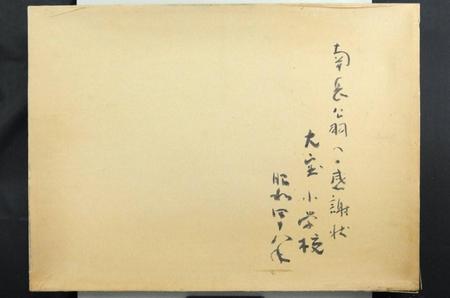 南長公羽へ・感謝状
大宝小学校
昭和四十八年